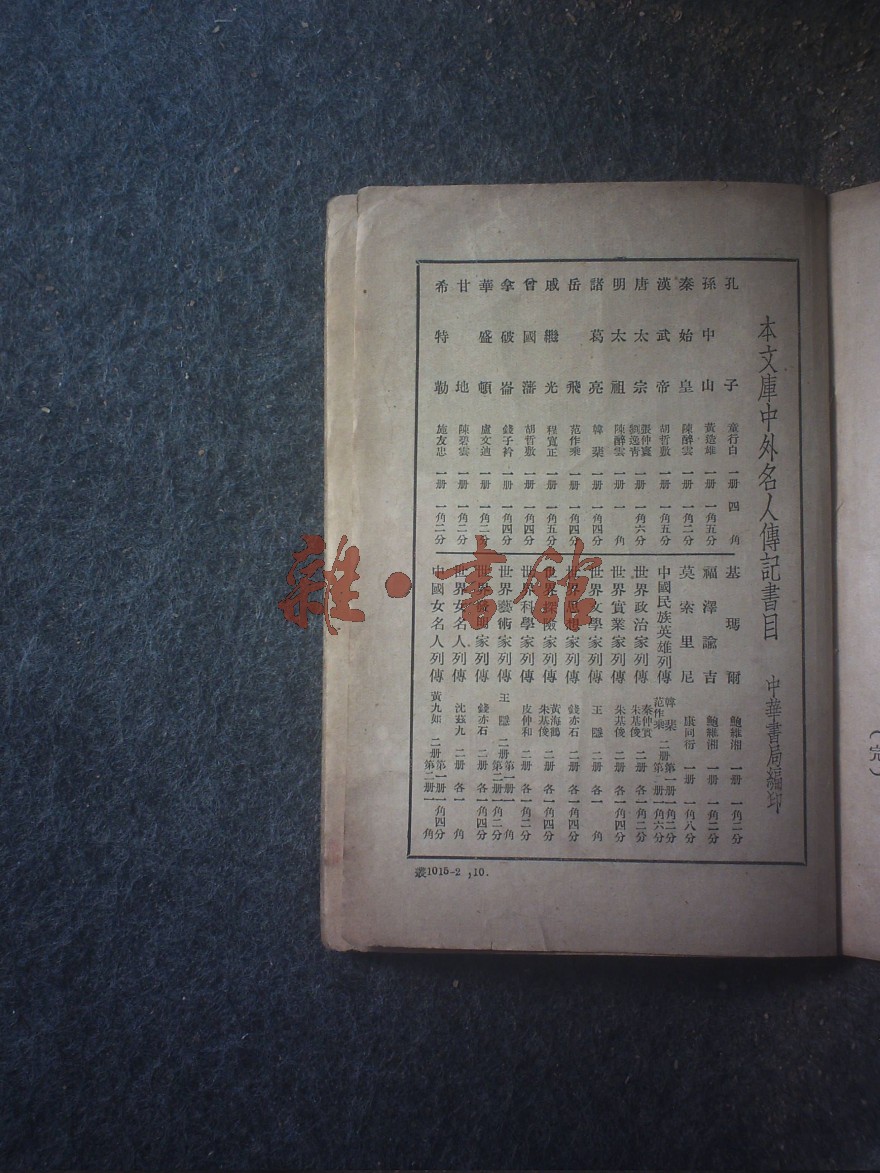 本文庫中外名人傳記書目
中華書局編印
孔子 童行白 一册 四角
孫中山 黃造雄 一册 一角五分
秦始皇 陳醉雲 一册 一角二分
漢武帝 胡哲敷 一册 一角五分
唐太宗 張仲寰 劉逸青 一册 一角六分
明太祖 陳醉雲 一册 一角
諸葛亮 韓棐 一册 一角四分
岳飛 范作乘 一册 一角四分
戚繼光 程寬正 一册 一角五分
曾國藩 胡哲敷 一册 一角四分
拿破崙 錢子衿 一册 一角四分
華盛頓 盧文迪 一册 一角二分
甘地 陳碧雲 一册 一角二分
希特勒 施友忠 一册 一角二分
基瑪爾 鮑維湘 一册 一角二分
福澤諭吉 鮑維湘 一册 一角二分
莫索里尼 康同衍 一册 一角八分
中國民族英雄列傳 韓棐 范作乘 二册 第一册一角二分 第二册一角六分
世界政治家列傳 朱基俊 二册 各一角二分
世界實業家列傳 朱基俊 二册 各一角四分
世界文學家列傳 王隱 二册 各一角
世界思想家列傳 錢亦石 二册 各一角四分
世界探險家列傳 黃海鶴 朱基俊 二册 各一角四分
世界科學家列傳 皮仲和 二册 各一角二分
世界藝術家列傳 王隱 二册 第一册一角 第二册一角二分
世界發明家列傳 錢亦石 二册 各一角四分
世界女名人列傳 沈茲九 二册 各一角
中國女名人列傳 黃九如 二册 第一册一角四分 第二册一角
叢1015-2,10.
(完)
雜·書館